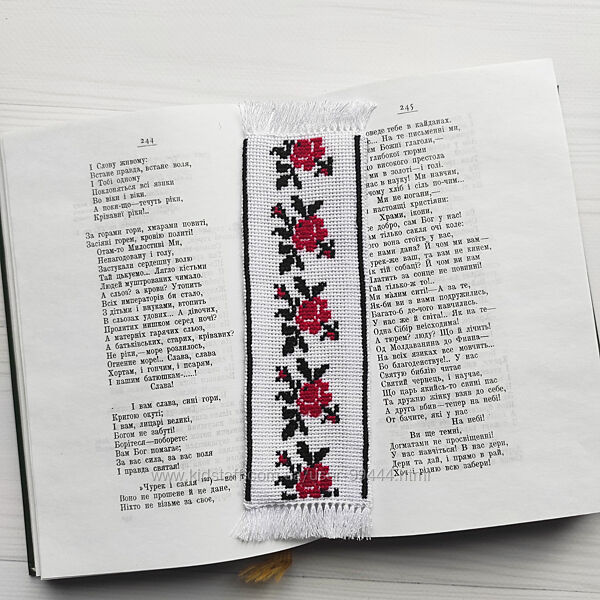 244
І Слову живому:
Встане правда, встане воля,
І Тобі одному
Поклоняться всі язики
Во віки і віки.
А поки-що—течуть ріки,
Крівавиї ріки!..
За горами гори, хмарами повиті,
Засіяні горем, кровію политі!
Отам-то Милостиві Ми,
Ненагодовану і голу,
Застукали сердешну волю
Тай цькуємо... Лягло кістьми
Людей муштрованих чимало.
А сльоз? а крови? Утопить
Всіх імператорів би стало,
З дітьми і внуками, втопить
В сльозах удових... А дівочих,
Пролитих нишком серед ночі?
А матерніх гарячих сльоз,
А батьківських, старих, крівавих?
Не ріки,—море розлилось,
Огненне море!.. Слава, слава
Хортам, і гончим, і псарям,
І нашим батюшкам-....!
Слава!
І вам слава, сині гори,
Кригою окуті;
І вам, лицарі великі,
Богом не забуті!
Борітеся—поборете:
Вам Бог помагає;
За вас сила, за вас воля
І правда святая!
»Чурек і сакля — все
Воно не прошене й не дане,
Ніхто не візьме за своє,
245
тебе в кайданах.
На те письменні ми,
Божі глаголи,—
глибокої тюрми
високого престола
в золоті—і голі.
в науку! Ми навчим,
хліб і сіль по-чим...
Ми не погани,—
настоящі християни:
Храми, ікони,
Сам Бог у нас!
тілько сакля очі коле:
вона стоїть у вас,
нами дана? Й чом ми вам—
ваш, та вам не кинем,
тій собаці? Й чом ви нам
Платить за сонце не повинні!
Гай тілько-ж то!..
Ми малим ситі!—А за те,
Як-би ви з нами подружились,
Багато-б де-чого навчились!
У нас же й світа!.. Як на те—
Одна Сібір неісходима!
А тюрем? люду? Що й лічить!
Од Молдаванина до Финна—
На всіх язиках все мовчить...
Бо благоденствує!.. У нас
Святую біблію читає
Святий чернець, і научає,
Що царь якийсь-то свині пас
Та дружню жінку взяв до себе,
А друга вбив—тепер на небі!
От бачите, які у нас
На небі!
Ви ще темні,
Догматами не просвіщенні!
У нас навчіться! В нас дери,
Дери та дай, і прямо в рай,
Хоч і рідню всю забери!